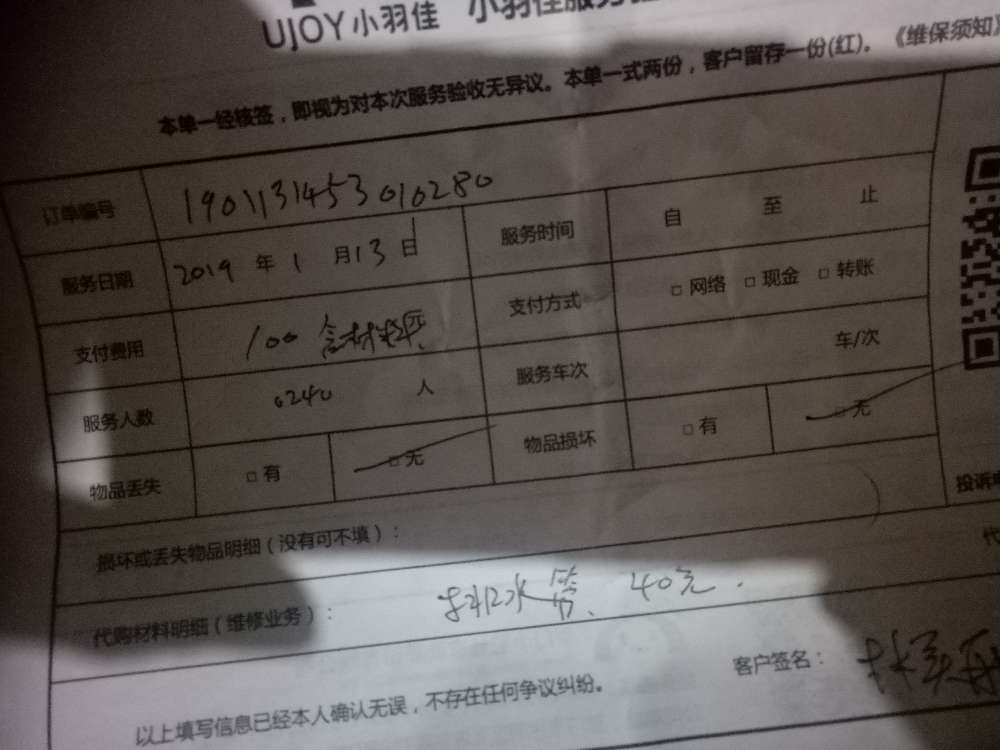 UJOY小羽佳 小羽佳服务
本单一经核签，即视为对本次服务验收无异议。本单一式两份，客户留存一份(红)。《维保须知》
订单编号 1901131453010280
服务日期 2019 年 1 月 13 日 服务时间 自 至 止
支付费用 100 含材料 支付方式 □ 网络 □ 现金 □ 转账
服务人数 0240 人 服务车次 车/次
物品丢失 □ 有 □ 无 物品损坏 □ 有 □ 无
投诉
损坏或丢失物品明细（没有可不填）：
代
代购材料明细（维修业务）： 水管、40元.
客户签名：
以上填写信息已经本人确认无误，不存在任何争议纠纷。